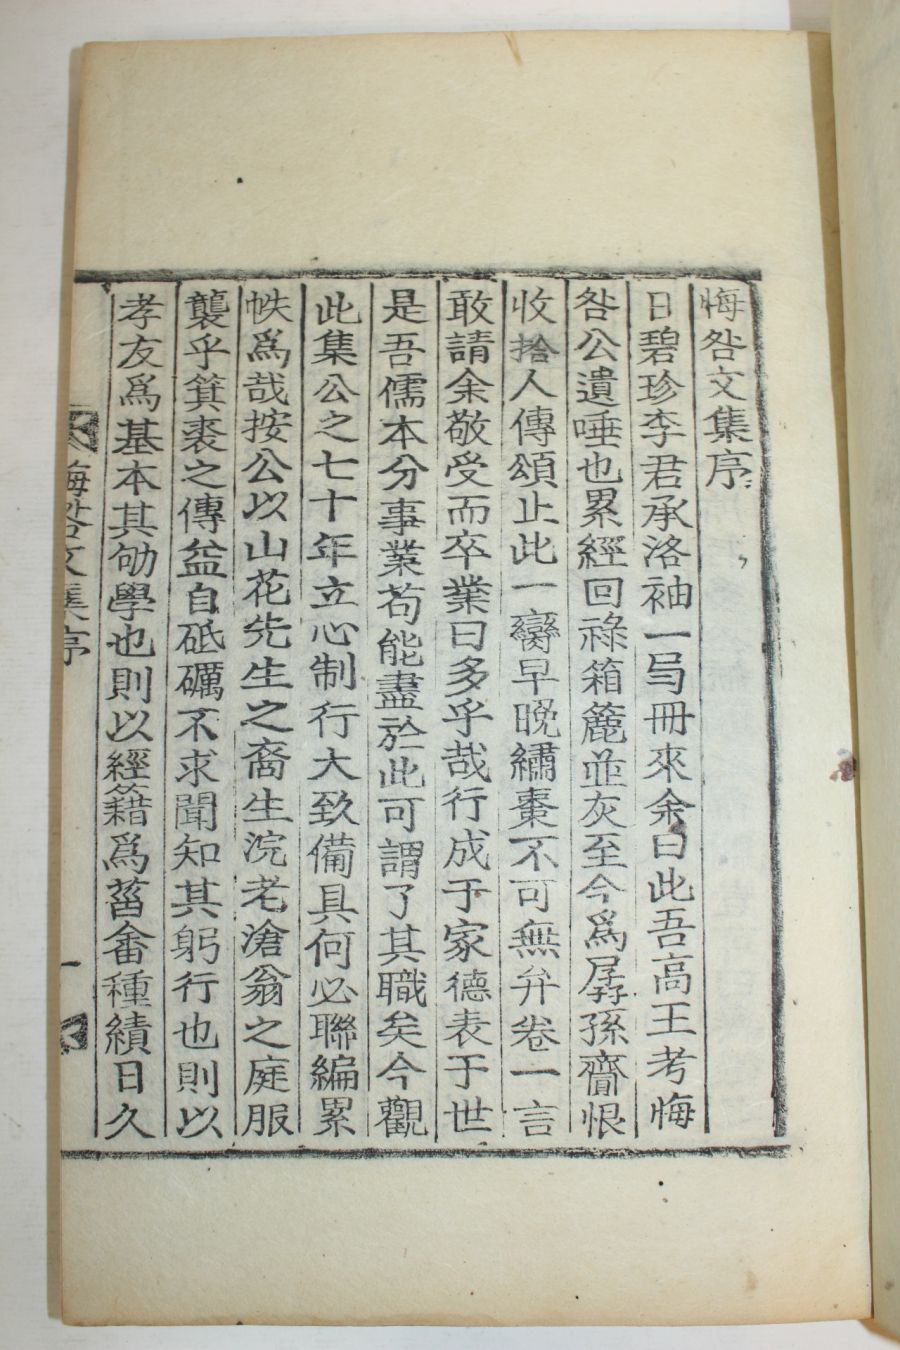 悔咎文集序
日碧珍李君承洛袖一弓冊來余曰此吾高王考悔
咎公遺唾也累經回祿箱簏並灰至今爲孱孫齎恨
收拾人傳頌止此一臠早晩繡棗不可無弁卷一言
敢請余敬受而卒業曰多乎哉行成于家德表于世
是吾儒本分事業苟能盡於此可謂了其職矣今觀
此集公之七十年立心制行大致備具何必聯編累
帙爲哉按公以山花先生之裔生浣老滄翁之庭服
襲乎箕裘之傳益自砥礪不求聞知其躬行也則以
孝友爲基本其劬學也則以經籍爲菑畬種績日久
悔咎文集序
一